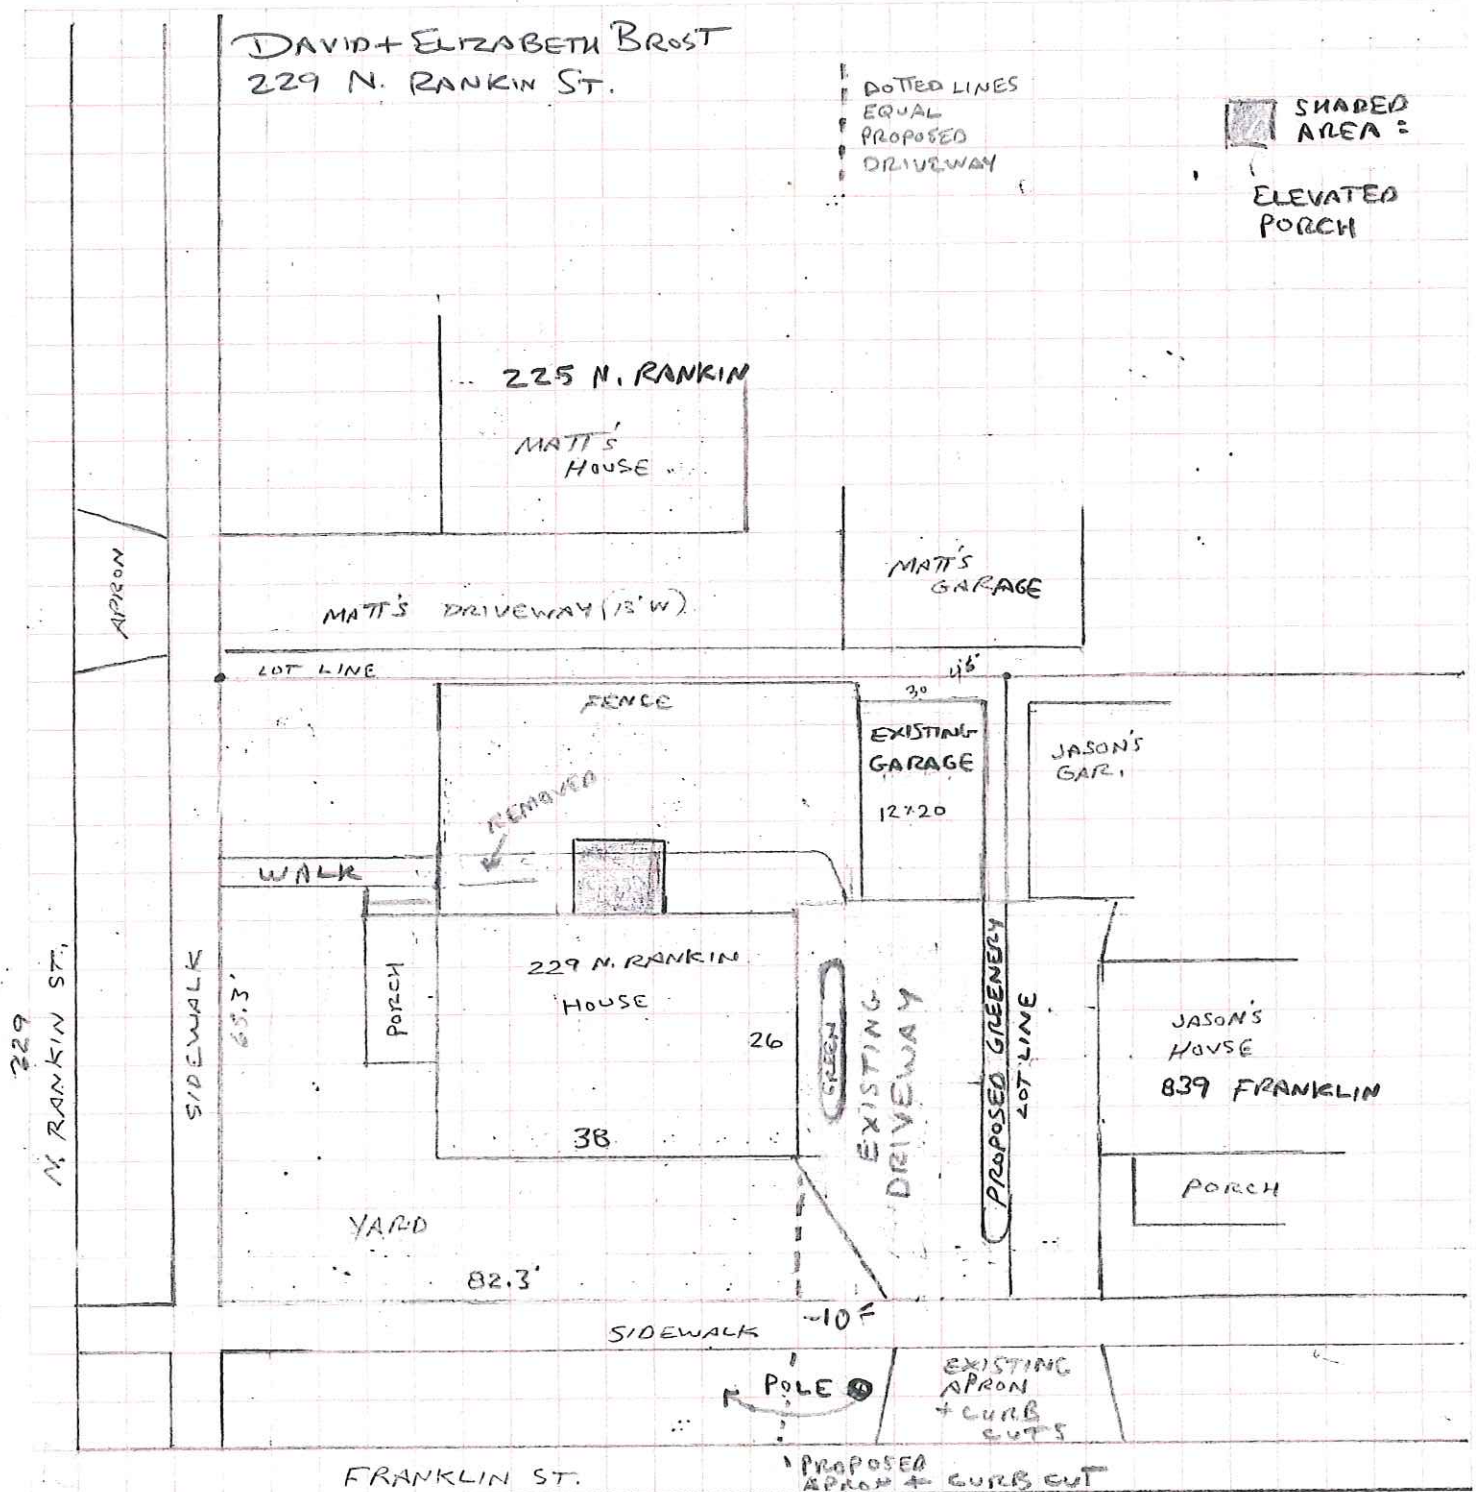 DAVID + ELIZABETH BROST
229 N. RANKIN ST.
DOTTED LINES
EQUAL
PROPOSED
DRIVEWAY
SHADED
AREA =
ELEVATED
PORCH
225 N. RANKIN
MATT'S
HOUSE
MATT'S
GARAGE
APRON
MATT'S DRIVEWAY (13'W)
LOT LINE
FENCE
30
EXISTING
GARAGE
12x20
JASON'S
GAR.
REMOVED
WALK
PORCH
229 N. RANKIN
HOUSE
26
38
GREEN
EXISTING
DRIVEWAY
PROPOSED GREENERY
LOT LINE
JASON'S
HOUSE
839 FRANKLIN
PORCH
229
N. RANKIN ST.
SIDEWALK
65.3'
YARD
82.3'
SIDEWALK
POLE
EXISTING
APRON
+ CURB
CUTS
FRANKLIN ST.
PROPOSED
APRON + CURB CUT